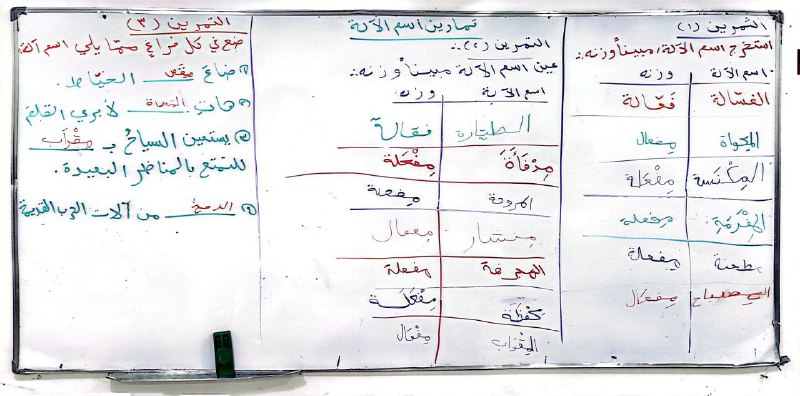 تمارين اسم الآلة
التمرين (١)
استخرج اسم الآلة/مبيناً وزنه:
اسم الآلة وزنه
الغسّالة فَعّالة
المِكواة مِفعال
المِكْنَسة مِفْعَلة
المِفْرَمَة مِفعلة
مطحنة مِفعالة
المصباح مِفعَال
التمرين (٢):
عين اسم الآلة مبيناً وزنه:
اسم الآلة وزنه
الطيّارة فعّالة
مِدْفَأَة مِفْعَلة
المروحة مِفعلة
مِنشار مِفعال
المجرفة مفعلة
مِفْعَلَة
المِقراب مِفْعَال
التمرين (٣)
ضع في كل فراغ ممّا يلي اسم آلة:
١) ضاعَ مِقَص الخيّاط.
٢) هاتِ لأبري القلمَ
٣) يستعين السيّاحُ بـ مِقْرَاب
للتمتع بالمناظر البعيدة.
٤) الرمح من آلات الحرب القديمة